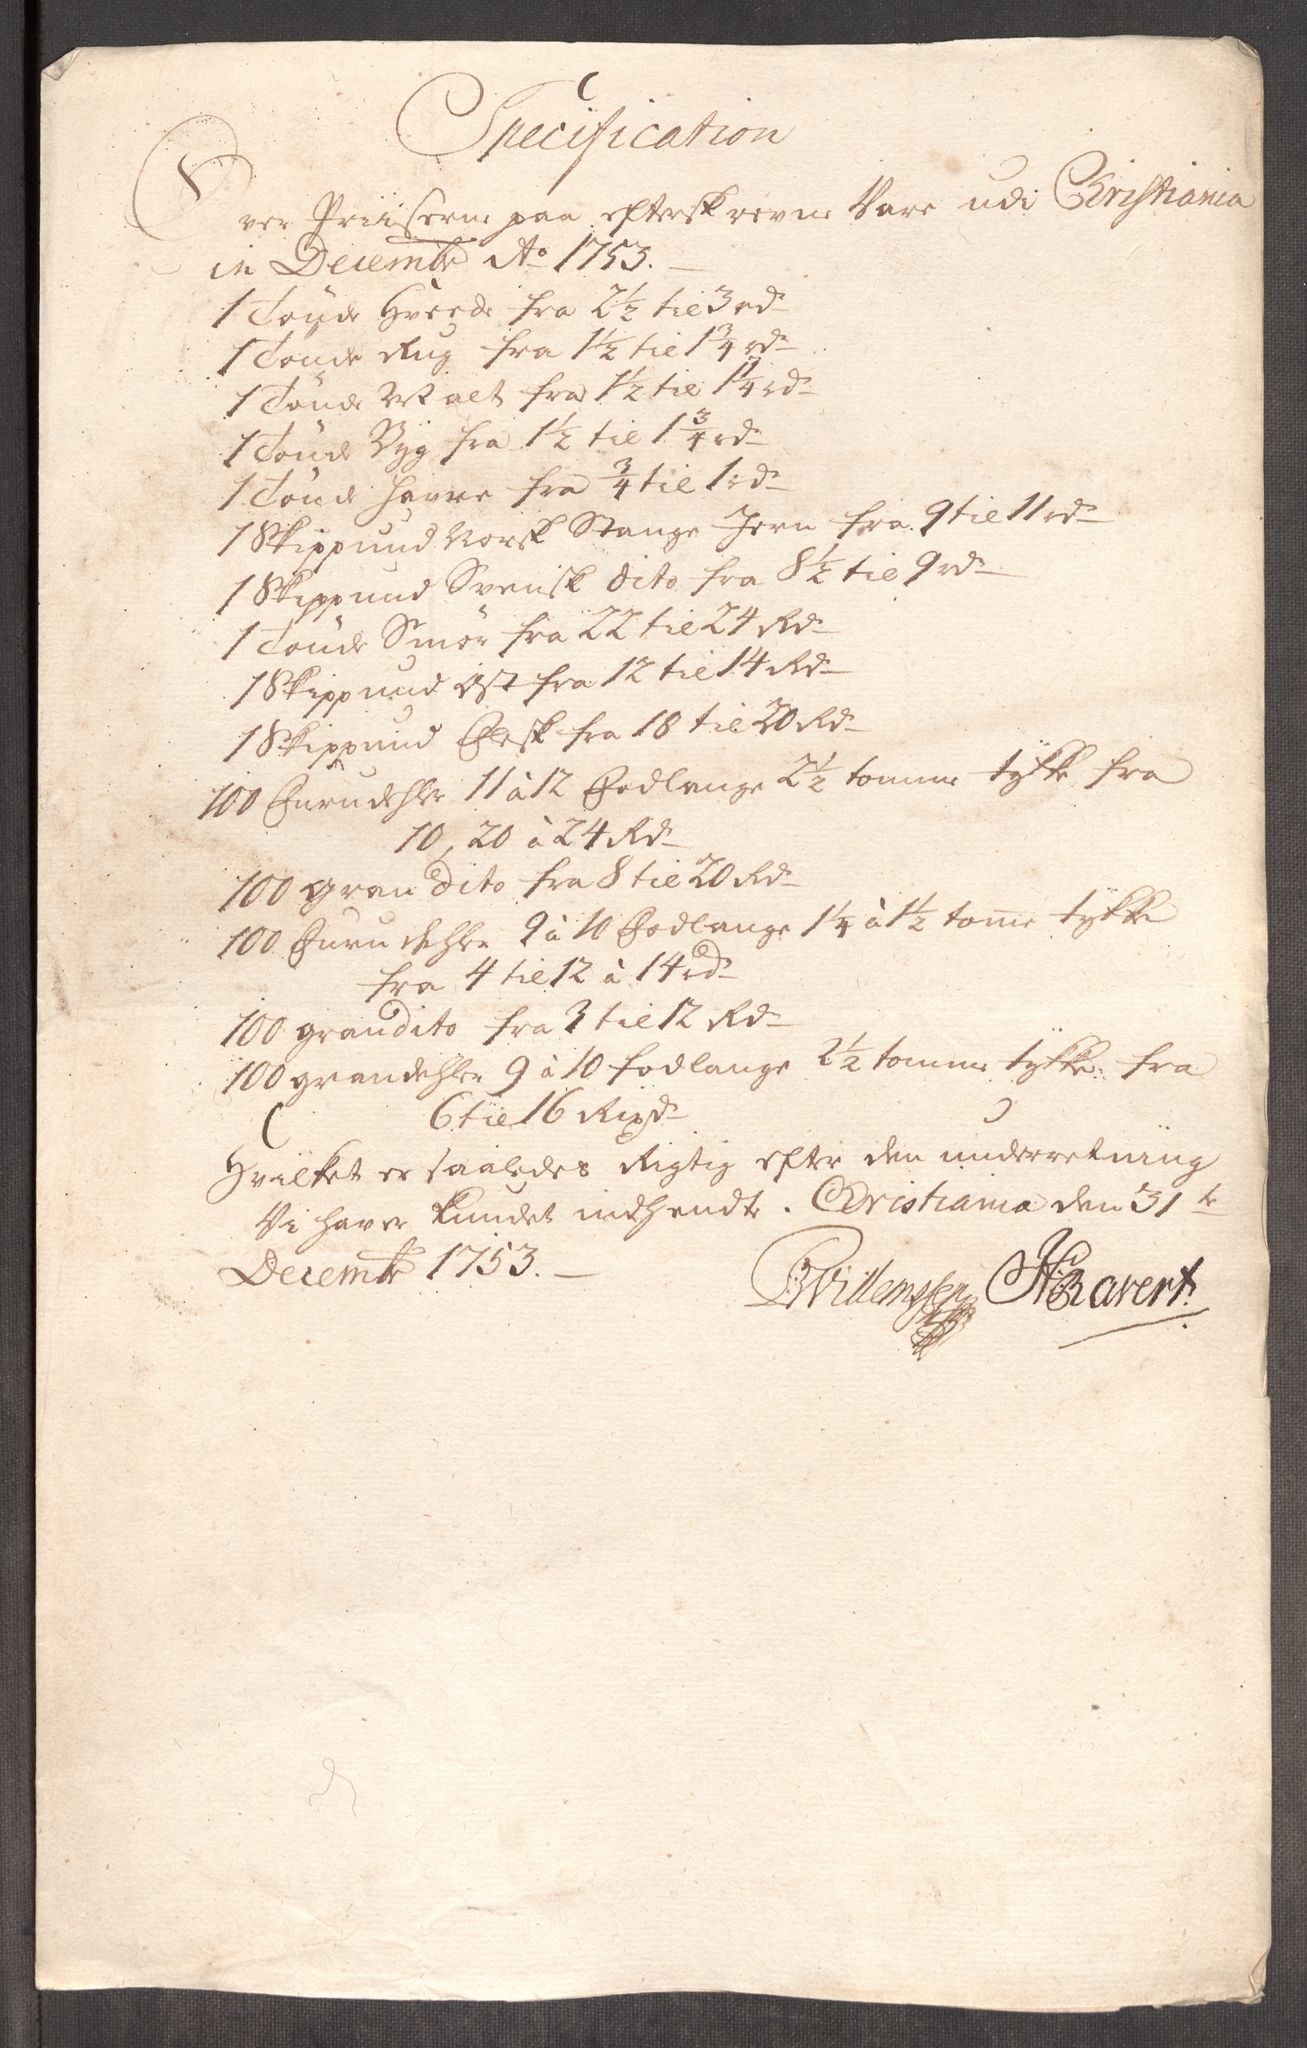 Specification
Over Priiserne paa efterskrevne Vare udi Christiania
in Decembr Ao 1753.
1 Tønde Hvede fra 2½ til 3 rd
1 Tønde Rug fra 1½ til 1¾ rd
1 Tønde Malt fra 1½ til 1¼ rd
1 Tønde Byg fra 1½ til 1¾ rd
1 Tønde Havre fra ¾ til 1 rd
1 Skippund Norsk Stange Jern fra 9 til 11 rd
1 Skippund Svensk dito fra 8½ til 9 rd
1 Tønde Smør fra 22 til 24 Rd
1 Skippund Ost fra 12 til 14 Rd
1 Skippund Flesk fra 18 til 20 Rd
100 Furudehler 11 à 12 Fodlange 2½ tomme tykke fra
10, 20 à 24 Rd
100 gran dito fra 8 til 20 Rd
100 Furudehler 9 à 10 Fodlange 1¼ à 1½ tome tykke
fra 4 til 12 à 14 rd
100 gran dito fra 3 til 12 Rd
100 grandehler 9 à 10 fodlange 2½ tomme tykke fra
6 til 16 Rixd
Hvilket er saaledes Rigtig efter den underretning
Vi haver kundet indhendte. Christiania den 31te
Decembr 1753.
BWillemssen HBavert.